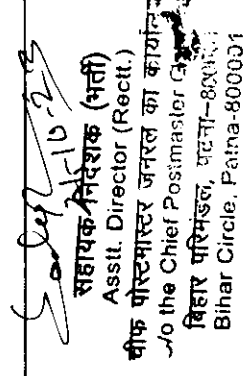 31-10-23
सहायक निदेशक (भर्ती)
Asstt. Director (Rectt.)
चीफ पोस्टमास्टर जनरल का कार्यालय
o the Chief Postmaster G
बिहार परिमंडल, पटना-800001
Bihar Circle, Patna-800001